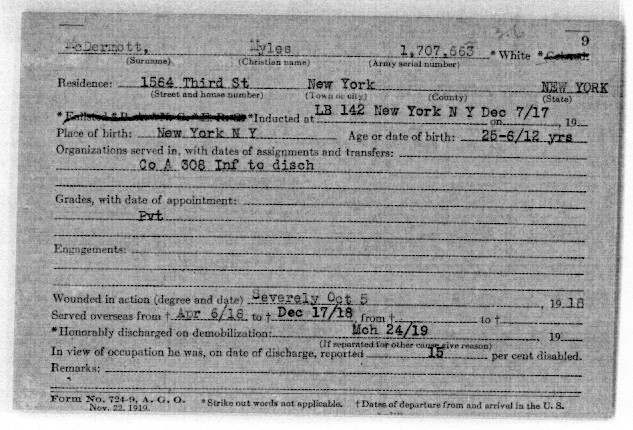 3.6
9
McDermott, Myles 1,707,663 *White *Colored.
(Surname) (Christian name) (Army serial number)
Residence: 1564 Third St New York NEW YORK
(Street and house number) (Town or city) (County) (State)
*Inducted at LB 142 New York N Y Dec 7/17
on , 19
Place of birth: New York N Y Age or date of birth: 25-6/12 yrs
Organizations served in, with dates of assignments and transfers:
Co A 308 Inf to disch
Grades, with date of appointment:
Pvt
Engagements:
Wounded in action (degree and date) Severely Oct 5 , 1918
Served overseas from † Apr 6/18 to † Dec 17/18 from † to †
*Honorably discharged on demobilization: Mch 24/19 19
(If separated for other cause give reason)
In view of occupation he was, on date of discharge, reported 15 per cent disabled.
Remarks:
Form No. 724-9, A. G. O. *Strike out words not applicable. †Dates of departure from and arrival in the U. S.
Nov. 22, 1919.